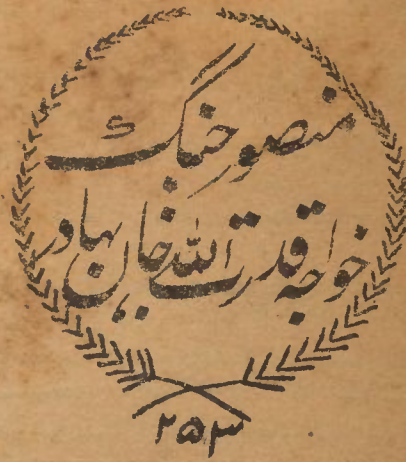 منصور جنگ
خواجه قدرت الله خان بهادر
۲۵۳